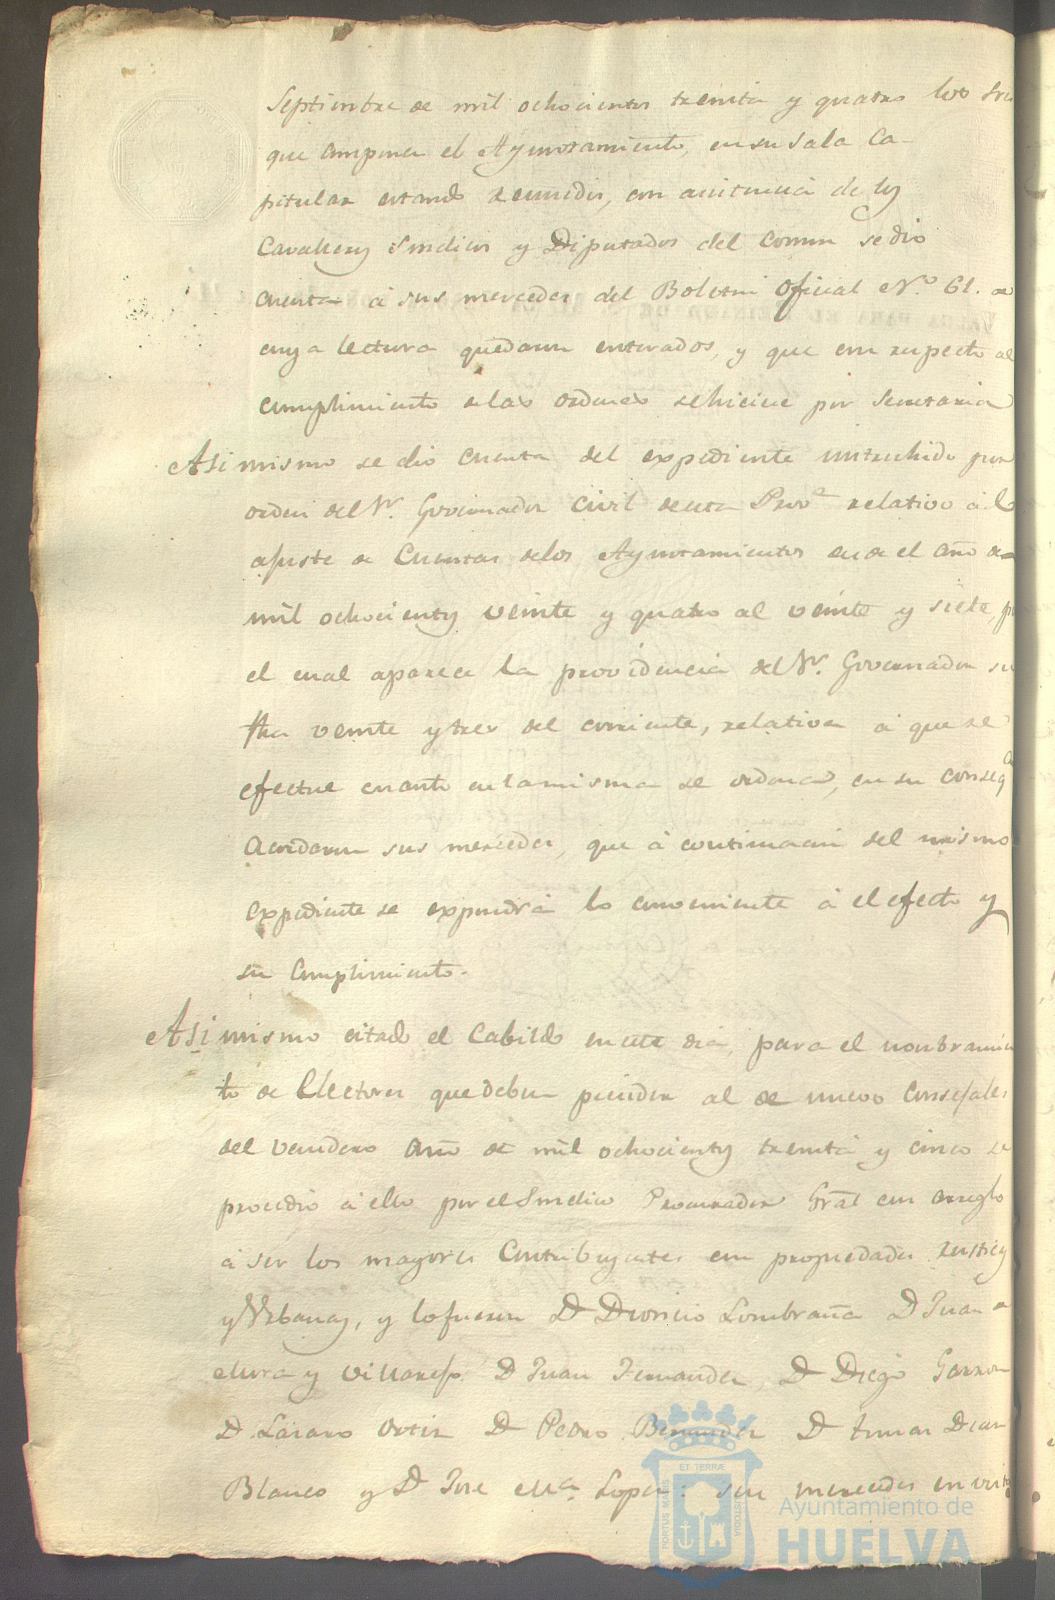 Septiembre de mil ochocientos treinta y quatro los Sres
que componen el Ayuntamiento, en su Sala Ca-
pitular estando reunidos, con asistencia de los
Cavalleros Sindicos y Diputados del Comun se dio
cuenta á sus mercedes del Boletin Oficial N.º 61. de
cuya lectura quedaron enterados, y que con respecto al
cumplimiento de las ordenes se hiciese por Secretaria
Asi mismo se dio cuenta del expediente instruhido por
orden del Sr. Governador Civil de esta Prov.ª relativo á el
ajuste de Cuentas de los Ayuntamientos desde el año de
mil ochocientos veinte y quatro al veinte y siete, p
el cual aparece la providencia del Sr. Governador su
fha veinte y tres del corriente, relativa á que se
efectue cuanto en la misma se ordena, en su conseqª
acordaron sus mercedes, que á continuacion del mismo
expediente se expondrá lo conveniente á el efecto y
su cumplimiento.
Asi mismo citado el Cabildo en este dia, para el nonbramien
to de Electores que deben proceder al de nuevos Consejales
del venidero año de mil ochocientos treinta y cinco se
procedió á ello por el Sindico Procurador Gral con arreglo
á ser los mayores Contribuyentes en propiedades rusticas
y Urbanas, y lo fueron D Dionicio Lombraña D Juan de
Mora y Villarejo. D Juan Fernandez, D Diego Garzon
D. Lázaro Ortiz D Pedro Bermudez D Tomas Diaz
Blanco y D Jose Mª. Lopez: sus mercedes en virtu
PORTUS MARIS ET TERRÆ CUSTODIA
Ayuntamiento de
HUELVA